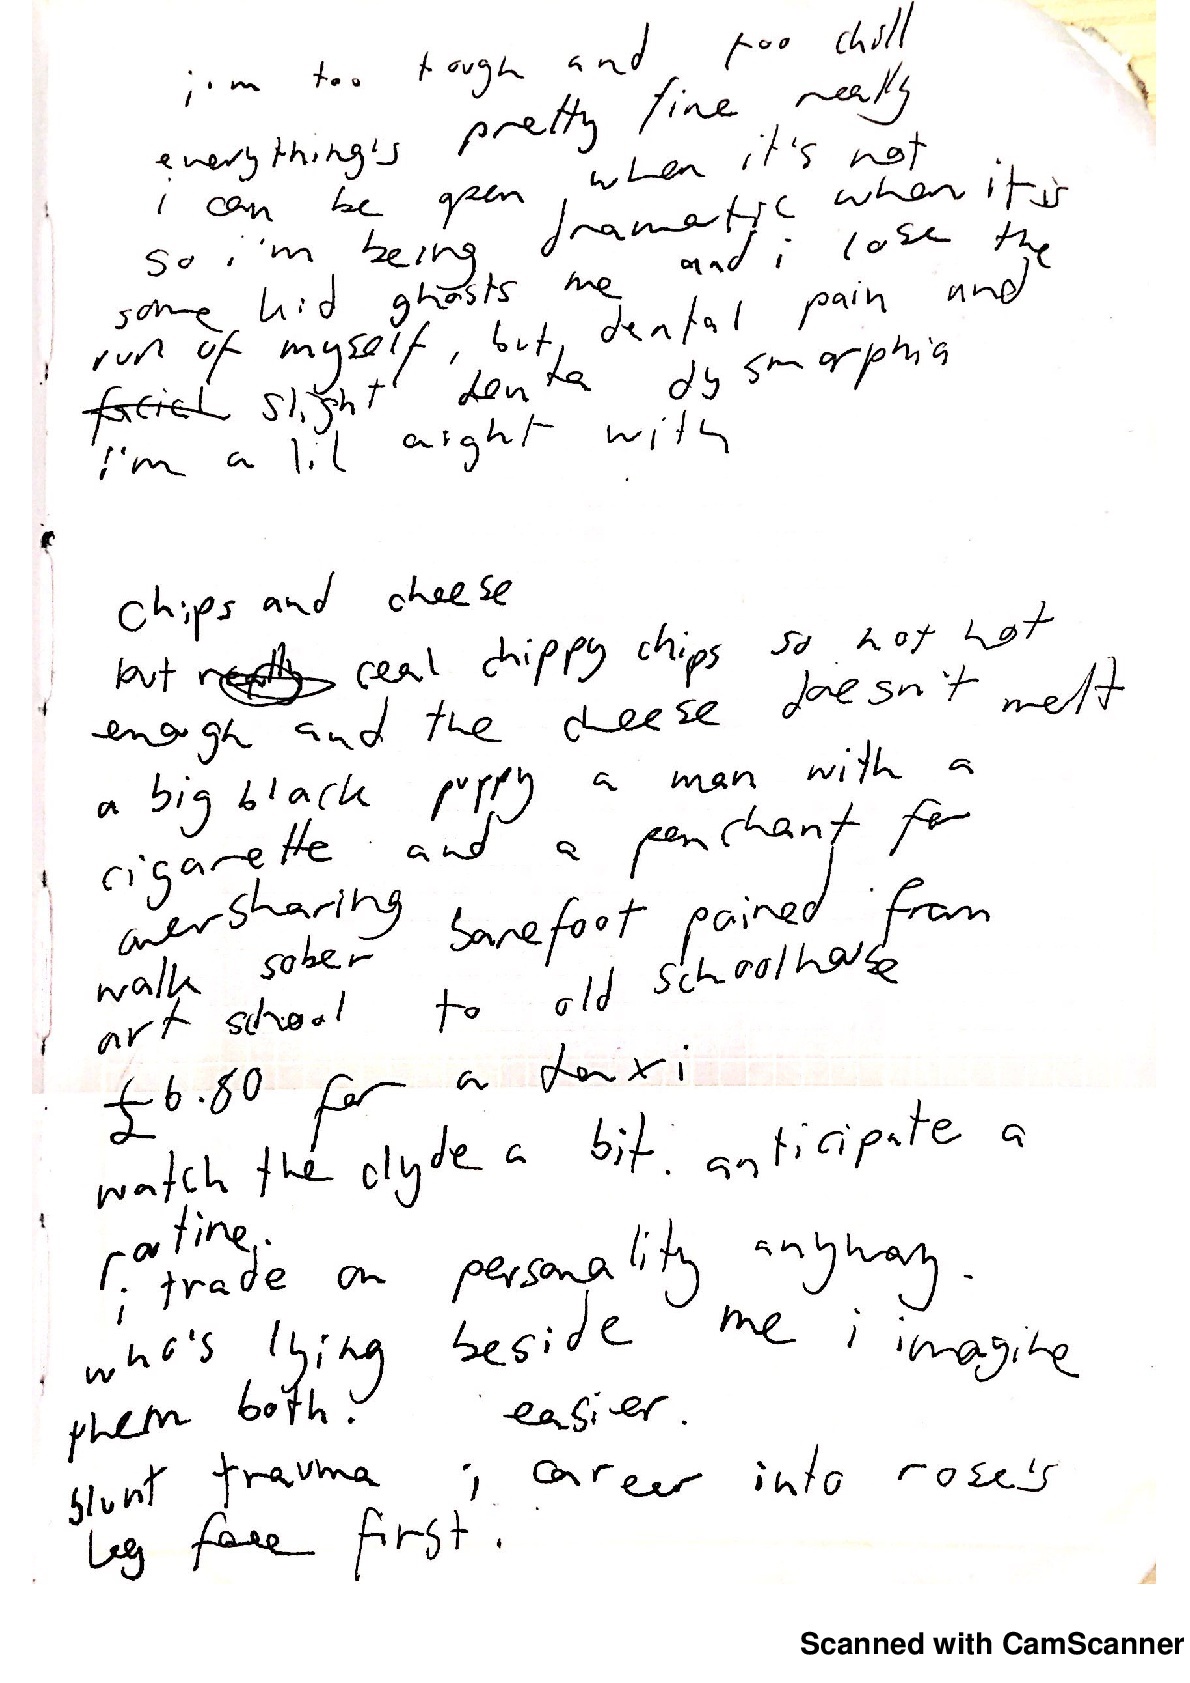 i'm too tough and too chill
everything's pretty fine really
i can be open when it's not
so i'm being dramatic when it is
some kid ghosts me and i lose the
run of myself, but, dental pain and
facial slight denta dysmorphia
i'm a lil aight with
chips and cheese
but really real chippy chips so not hot
enough and the cheese doesn't melt
a big black puppy a man with a
cigarette and a penchant for
oversharing
walk sober barefoot pained from
art school to old schoolhouse
£6.80 for a taxi
watch the clyde a bit. anticipate a
routine.
i trade on personality anyway.
who's lying beside me i imagine
them both. easier.
blunt trauma i career into rose's
leg face first.
Scanned with CamScanner